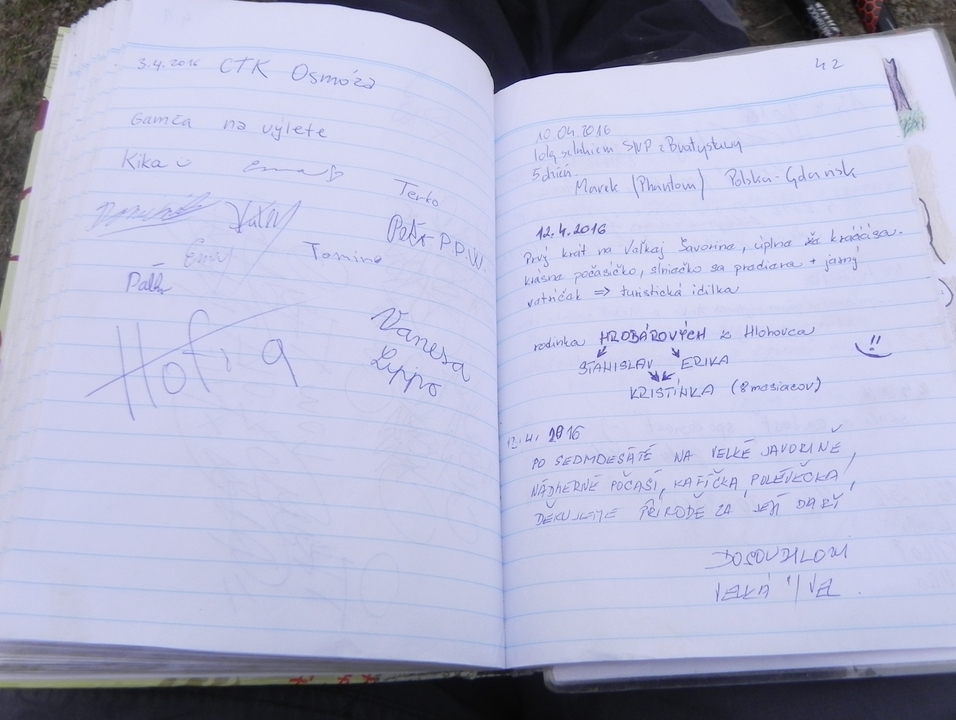 3.4.2016 CTK Osmóza
Gamča na výlete
Kika
Ema
Terko
Petr P.D.W.
Emy
Tomino
Palk
Hofra
Vanesa
Lippo
42
10.04.2016
Idę szlakiem SNP z Bratysławy
5 dzień.
Marek (Phantom) Polska-Gdańsk
12.4.2016
Prvý krát na Veľkej Javorine, úplna kráááása.
krásne počasíčko, slniečko sa prediera + jarný
vetríčok => turistická idilka
rodinka HROBÁROVÝCH z Hlohovca
STANISLAV ERIKA
KRISTÍNKA (8 mesiacov)
12.4. 2016
PO SEDMDESÁTÉ NA VELKÉ JAVOŘINĚ,
NÁDHERNÉ POČASÍ, KAFÍČKO, POLÉVEČKA,
DĚKUJEME PŘÍRODĚ ZA JEJÍ DARY
VELKÁ